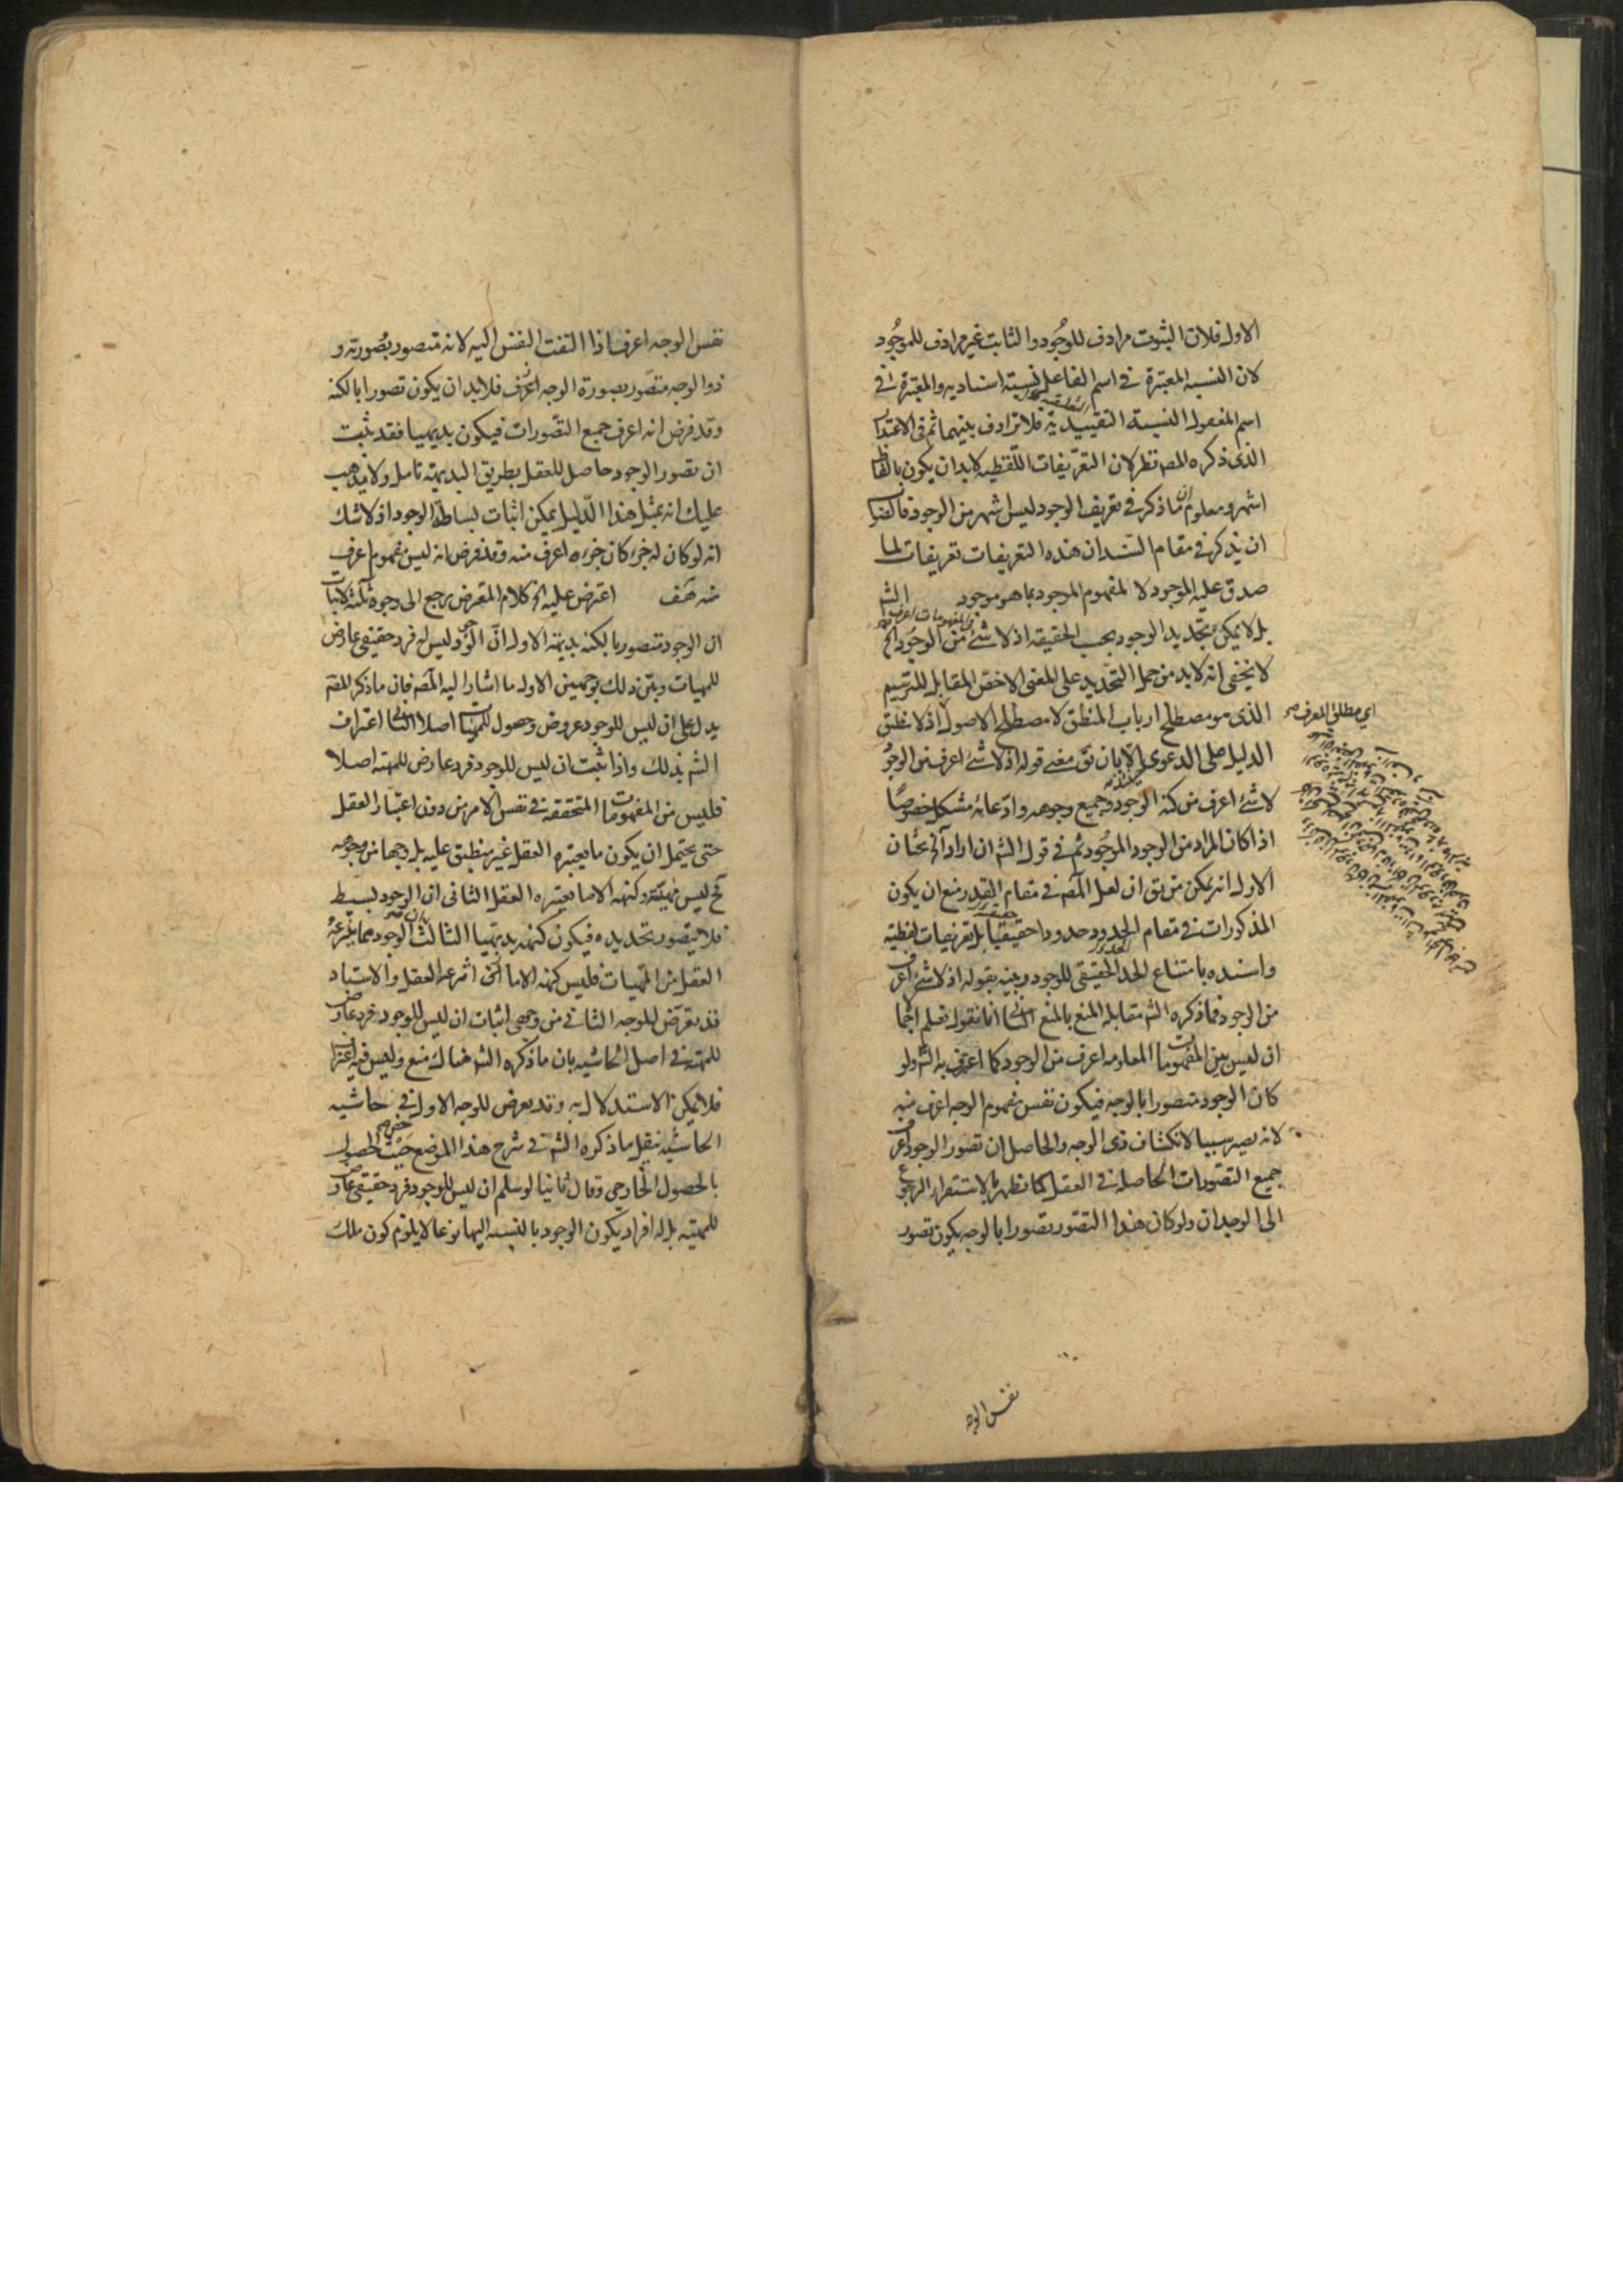 الاول فلان الثبوت مرادف للوجود والثابت غير مرادف للموجود
لان النسبه المعتبرة فى اسم الفاعل نسبته اسناديه والمعتبرة فى
اسم المفعول النسبة التقييدية فلا ترادف بينهما ثم فى الاعتذار
الذى ذكره المص نظر لان التعريفات اللفظيه لابد ان يكون بالفاظ
اشهر ومعلوم ان ما ذكر فى تعريف الوجود ليس اشهر من الوجود فالصواب
ان يذكر فى مقام السند ان هذه التعريفات تعريفات لما
صدق عليه الموجود لا لمفهوم الموجود بما هو موجود الش
بل لا يمكن تحديد الوجود بحسب الحقيقه اذ لا شئ من المفهومات اعرف من الوجود الخ
لا يخفى انه لابد من حمل التحديد على المعنى الاخص المقابل للترسيم
الذى هو مصطلح ارباب المنطق لا مصطلح الاصول اذ لا ينطبق
الدليل على الدعوى الا بان يق معنى قوله اذ لا شئ اعرف من الوجود
لا شئ اعرف من كنه الوجود وجميع وجوهه وادعائه مشكل خصوصًا
اذا كان المراد من الوجود الموجود ثم فى قول الش ان اراد آه بحثان
الاول انه يمكن من يق ان لعل المص فى مقام القدر منع ان يكون
المذكورات فى مقام الحدود حدودا حقيقيا بل تعريفات لفظيه
واسنده بامتناع الحد الحقيقى للوجود وبينه بقوله اذ لا شئ اعرف
من الوجود فما ذكره الش مقابله المنع بالمنع الثانى انا نقول نعلم اجمالا
ان ليس بين المفهومات المعلومه اعرف من الوجود كما اعترف به الش ولو
كان الوجود متصورا بالوجه فيكون نفس مفهوم الوجه اعرف منه
لانه يصير سببا لانكشاف ذى الوجه والحاصل ان تصور الوجود اعرف
جميع التصورات الحاصله فى العقل كما تظهر بالاستقراء الرجوع
الى الوجدان ولو كان هذا التصور تصورا بالوجه يكون تصور
اى مطلق المعرف
نفس الوجه
نفس الوجه اعرف اذا التفت النفس اليه لانه متصور بصورته و
ذو الوجه متصور بصورة الوجه اعرف فلابد ان يكون تصورا بالكنه
وقد فرض انه اعرف جميع التصورات فيكون بديهيا فقد ثبت
ان تصور الوجود حاصل للعقل بطريق البديهة تامل ولا يذهب
عليك انه بمثل هذا الدليل يمكن اثبات بساطة الوجود اذ لا شك
انه لو كان له جزء كان جزءه اعرف منه وقد فرض انه ليس مفهوم اعرف
منه هف اعترض عليه الخ كلام المعترض يرجع الى وجوه ثلثة لاثبات
ان الوجود متصور بالكنه بديهة الاول ان الوجود ليس له فرد حقيقى عارض
للمهيات وبين ذلك بوجهين الاول ما اشار اليه المص فان ما ذكر المص
يدل على ان ليس للوجود عروض وحصول للمهيات اصلا الثانى اعتراف
الش بذلك واذا ثبت ان ليس للوجود فرد عارض للمهيه اصلا
فليس من المفهومات المتحققه فى نفس الامر من دون اعتبار العقل
حتى يحتمل ان يكون ما يعتبره العقل غير منطبق عليه بل وجها من وجوهه
فح ليس مهيته وكنهه الا ما يعتبره العقل الثانى ان الوجود بسيط
فلا يتصور تحديده فيكون كنهه بديهيا الثالث ان الوجود مما ينتزعه
العقل من المهيات فليس كنهه الا ما انتزعه العقل والاستاد
قد تعرض للوجه الثانى من وجهى اثبات ان ليس للوجود فرد عارض
للمهيه فى اصل الحاشيه بان ما ذكره الش هناك منع وليس فيه اعتراف
فلا يمكن الاستدلال به وقد يعرض للوجه الاول فى حاشيه
الحاشيه بنقل ما ذكره الش فى شرح هذا الموضع حيث خصص الحصول
بالحصول الخارجى وقال ثانيا لو سلم ان ليس للوجود فرد حقيقى عارض
للمهيه بل له افراد يكون الوجود بالنسبه اليها نوعا لا يلزم كون ملك